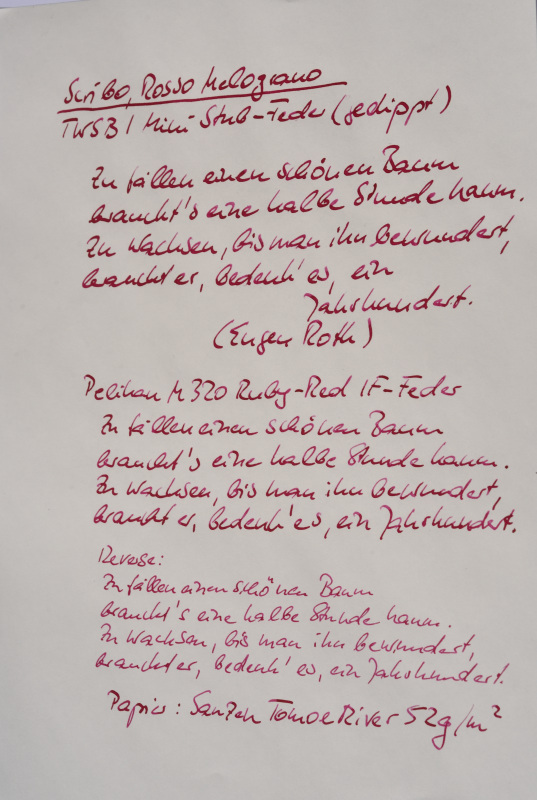 Scribo, Rosso Melograno
TWSBI Mini Stub-Feder (gedippt)
Zu fällen einen schönen Baum
braucht's eine halbe Stunde kaum.
Zu wachsen, bis man ihn bewundert,
braucht er, bedenk' es, ein
Jahrhundert.
(Eugen Roth)
Pelikan M320 Ruby-Red IF-Feder
Zu fällen einen schönen Baum
braucht's eine halbe Stunde kaum.
Zu wachsen, bis man ihn bewundert,
braucht er, bedenk' es, ein Jahrhundert.
Reverse:
Zu fällen einen schönen Baum
braucht's eine halbe Stunde kaum.
Zu wachsen, bis man ihn bewundert,
braucht er, bedenk' es, ein Jahrhundert.
Papier: Sanzen Tomoe River 52g/m²